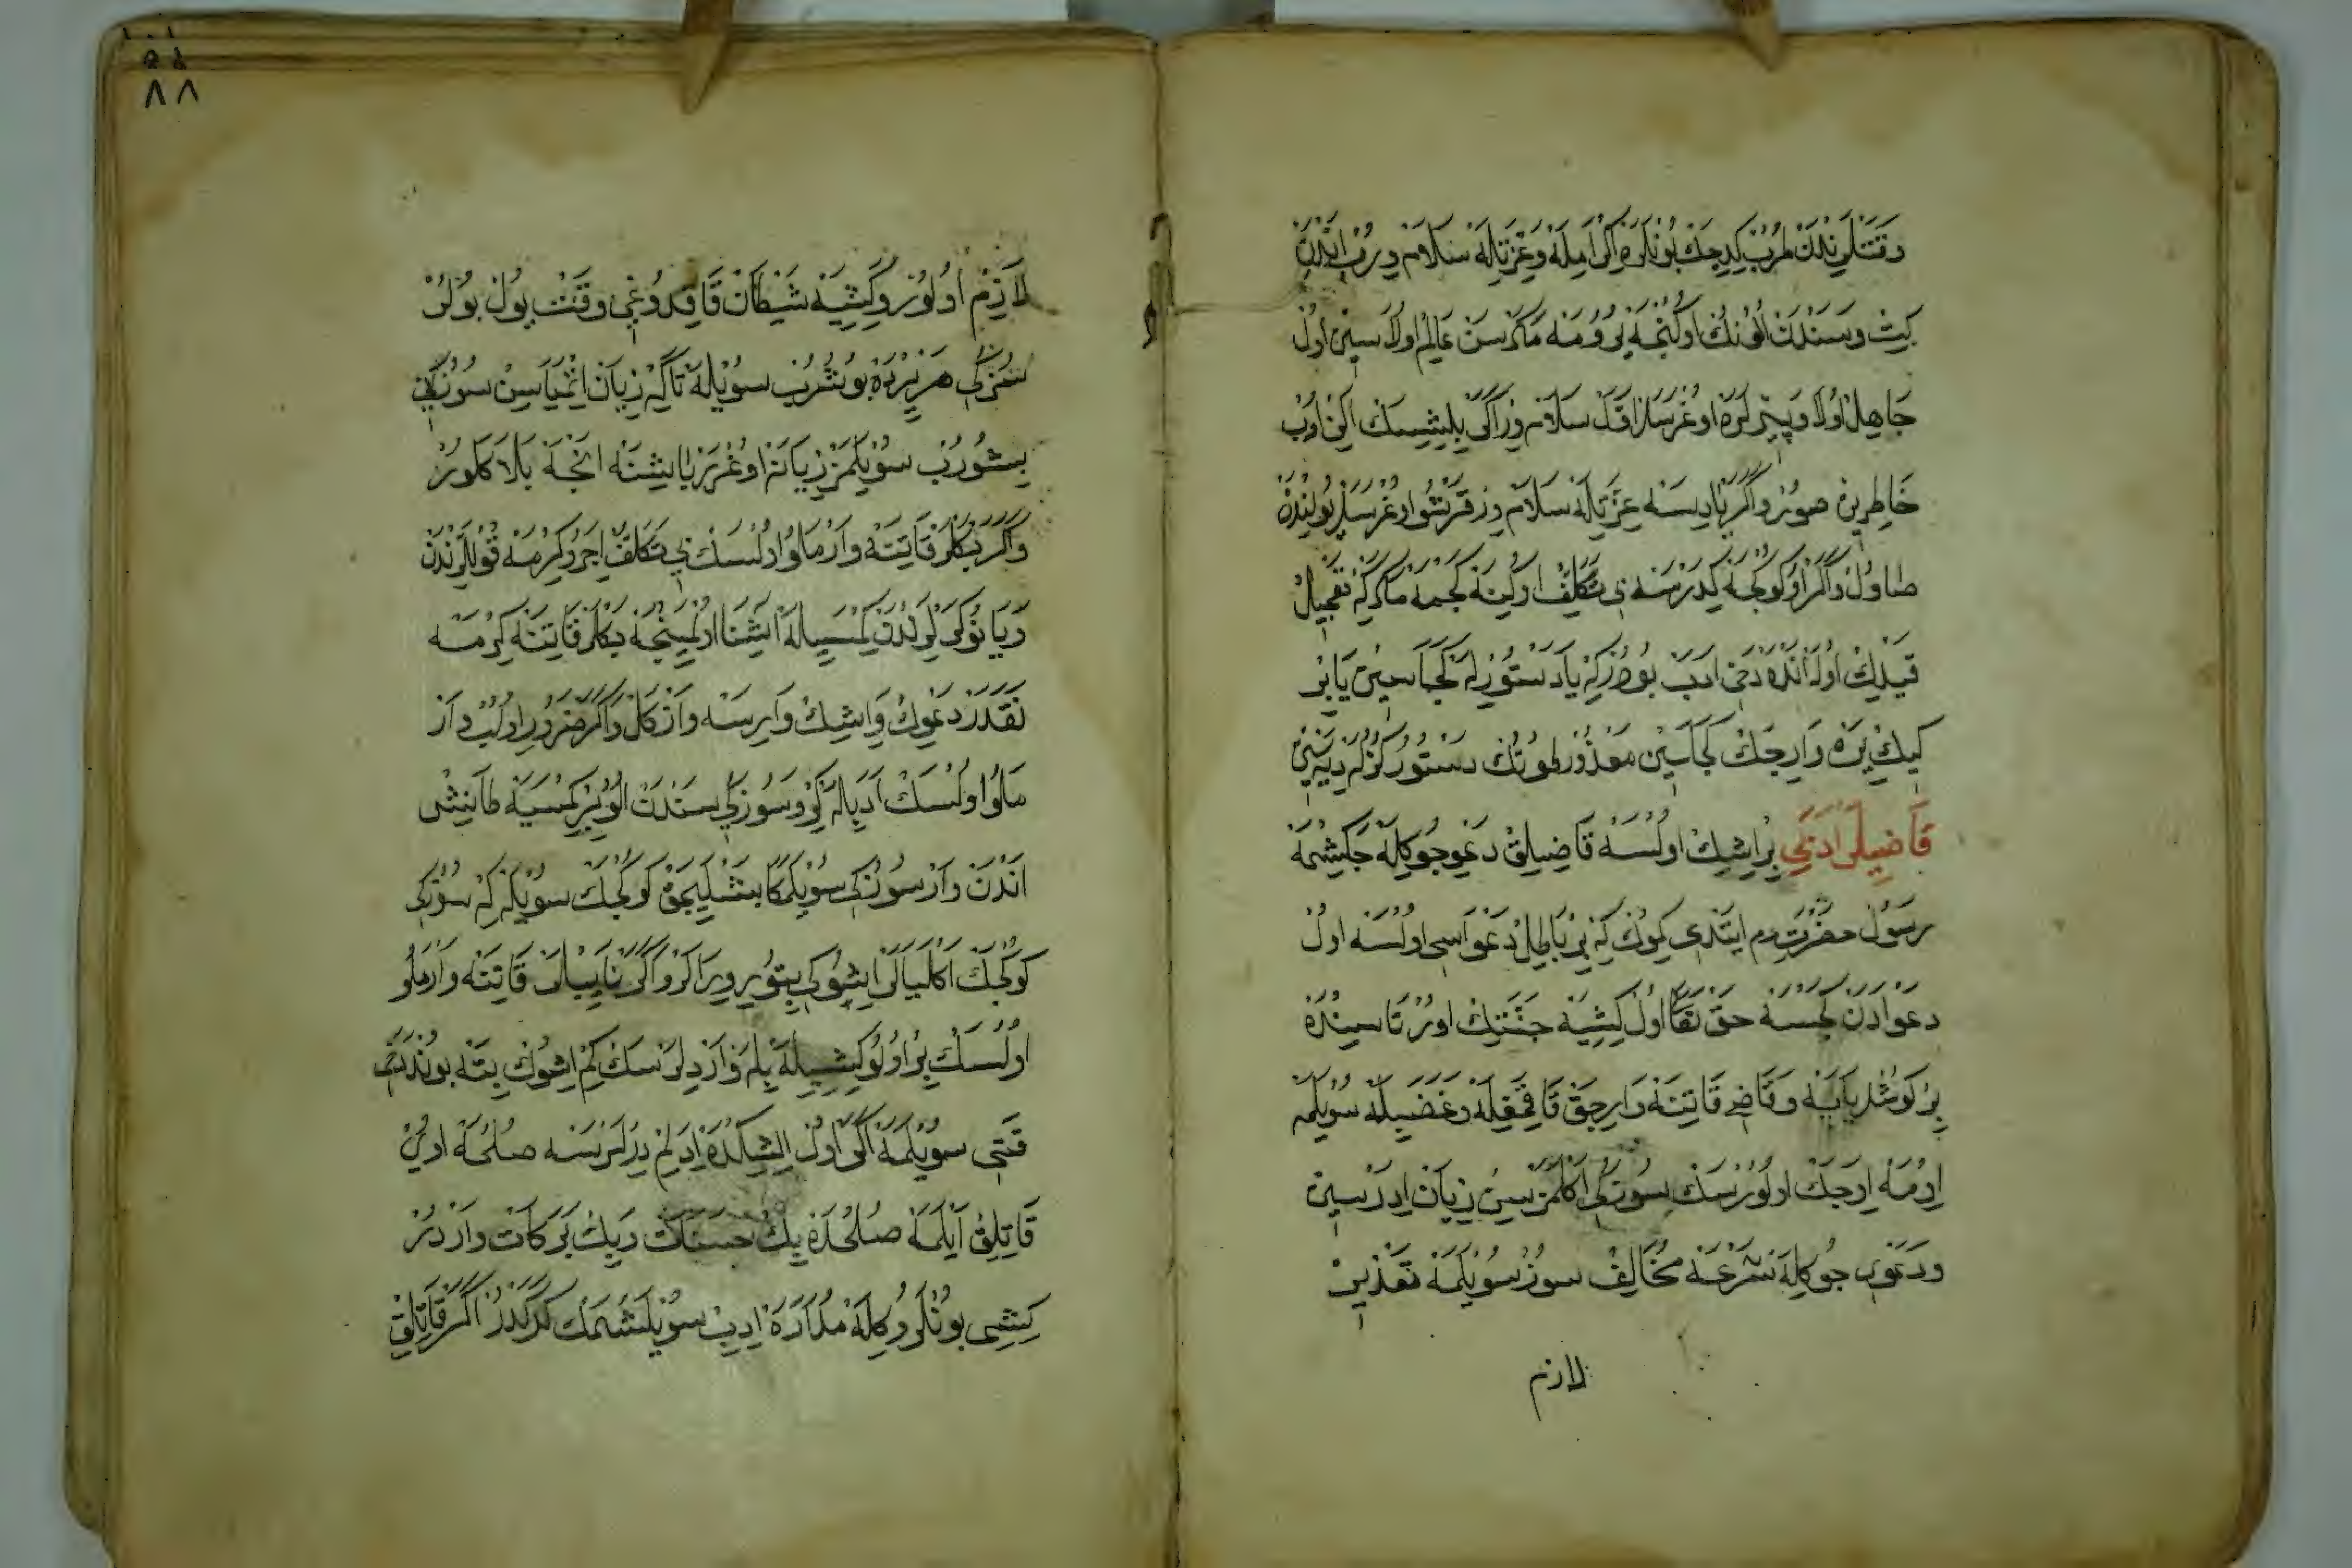 وقتلرندن طرب كدجك بونلره اكراميله وعزتيله سلام ويرب اندن
كيت وسندن الونك اوكنجه يورومه مكر سن عالم اولاسين اول
جاهل اولا وپيرلره اوغرسك اول سلام ور اكى بليشسك الن اوب
خاطرين صور واكر پياديسه عزتيله سلام وز قرشو اوغرسلر يولندن
صاول واكر اوكوكجه كدرسه بى تكلف اوكينه كچمه مكر كه تعجيل
قيدك اوله انده دخى ادب بودر كه يا دستورله كچاسين يا بر
كيك يره وارجك كچاسين معذور طوتك دستور كزله ديه سين
قاضيلر ادبى بر ايشك اولسه قاضيلق دعوجوكله چكشمه
رسول حضرت عم ايتدى كمونك كه بى باطل دعواسى اولسه اول
دعوادن كچسه حق تعالى اول كيشيه جنتك اورتاسينده
بر كوشك ياپه وقاضى قاتنه وارجق قاقيمغله وغضبيله سويلمه
ادمه ادجك اولورسك سوزكى اكلمزسين زيان ادرسين
ودعوى جوكله شرعه مخالف سوز سويلمه تعذير
لازم
لازم اولور وكيشيه شيطان قاقدوغى وقت يول بولر
سوزكى هر يرده بوشرب سويله تاكه زيان ايتمياسن سوزى
بشورب سويلمز زيانه اوغرر يا ايشنه انجه بلا كلور
واكر بكلر قاتنه وارملو اولسك بى تكلف اجرو كرمه قوللرندن
ويا نوكرلرندن كمسيله اشنا اولمينجه بكلر قاتنه كرمه
نقدر دعوك وايشك واريسه وازكل واكر ضرور اولب واز
ملو اولسك ادبيله كر وسوزكى سندن الو بر كمسيه طانيش
اندن وار سوزكى سويلمكا بشليجق كوكچك سويله كه سوزكى
كوكچك اكليالر ايشوكى بتورويرلر واكر ناييلر قاتنه وارملو
اولسك بر اولو كيشيله بله وار ديلرسك كم ايشوك بته بوندن
قتى سويلمه اكر اول ايشكده ايدلم ديرلرسه صلحه اوى
قاتلق ايلمه صلحده بيك حسنات وبيك بركات واردر
كيشى بونلروكله مدارا ايدب سويلشمك كركدر اكر قاتلق